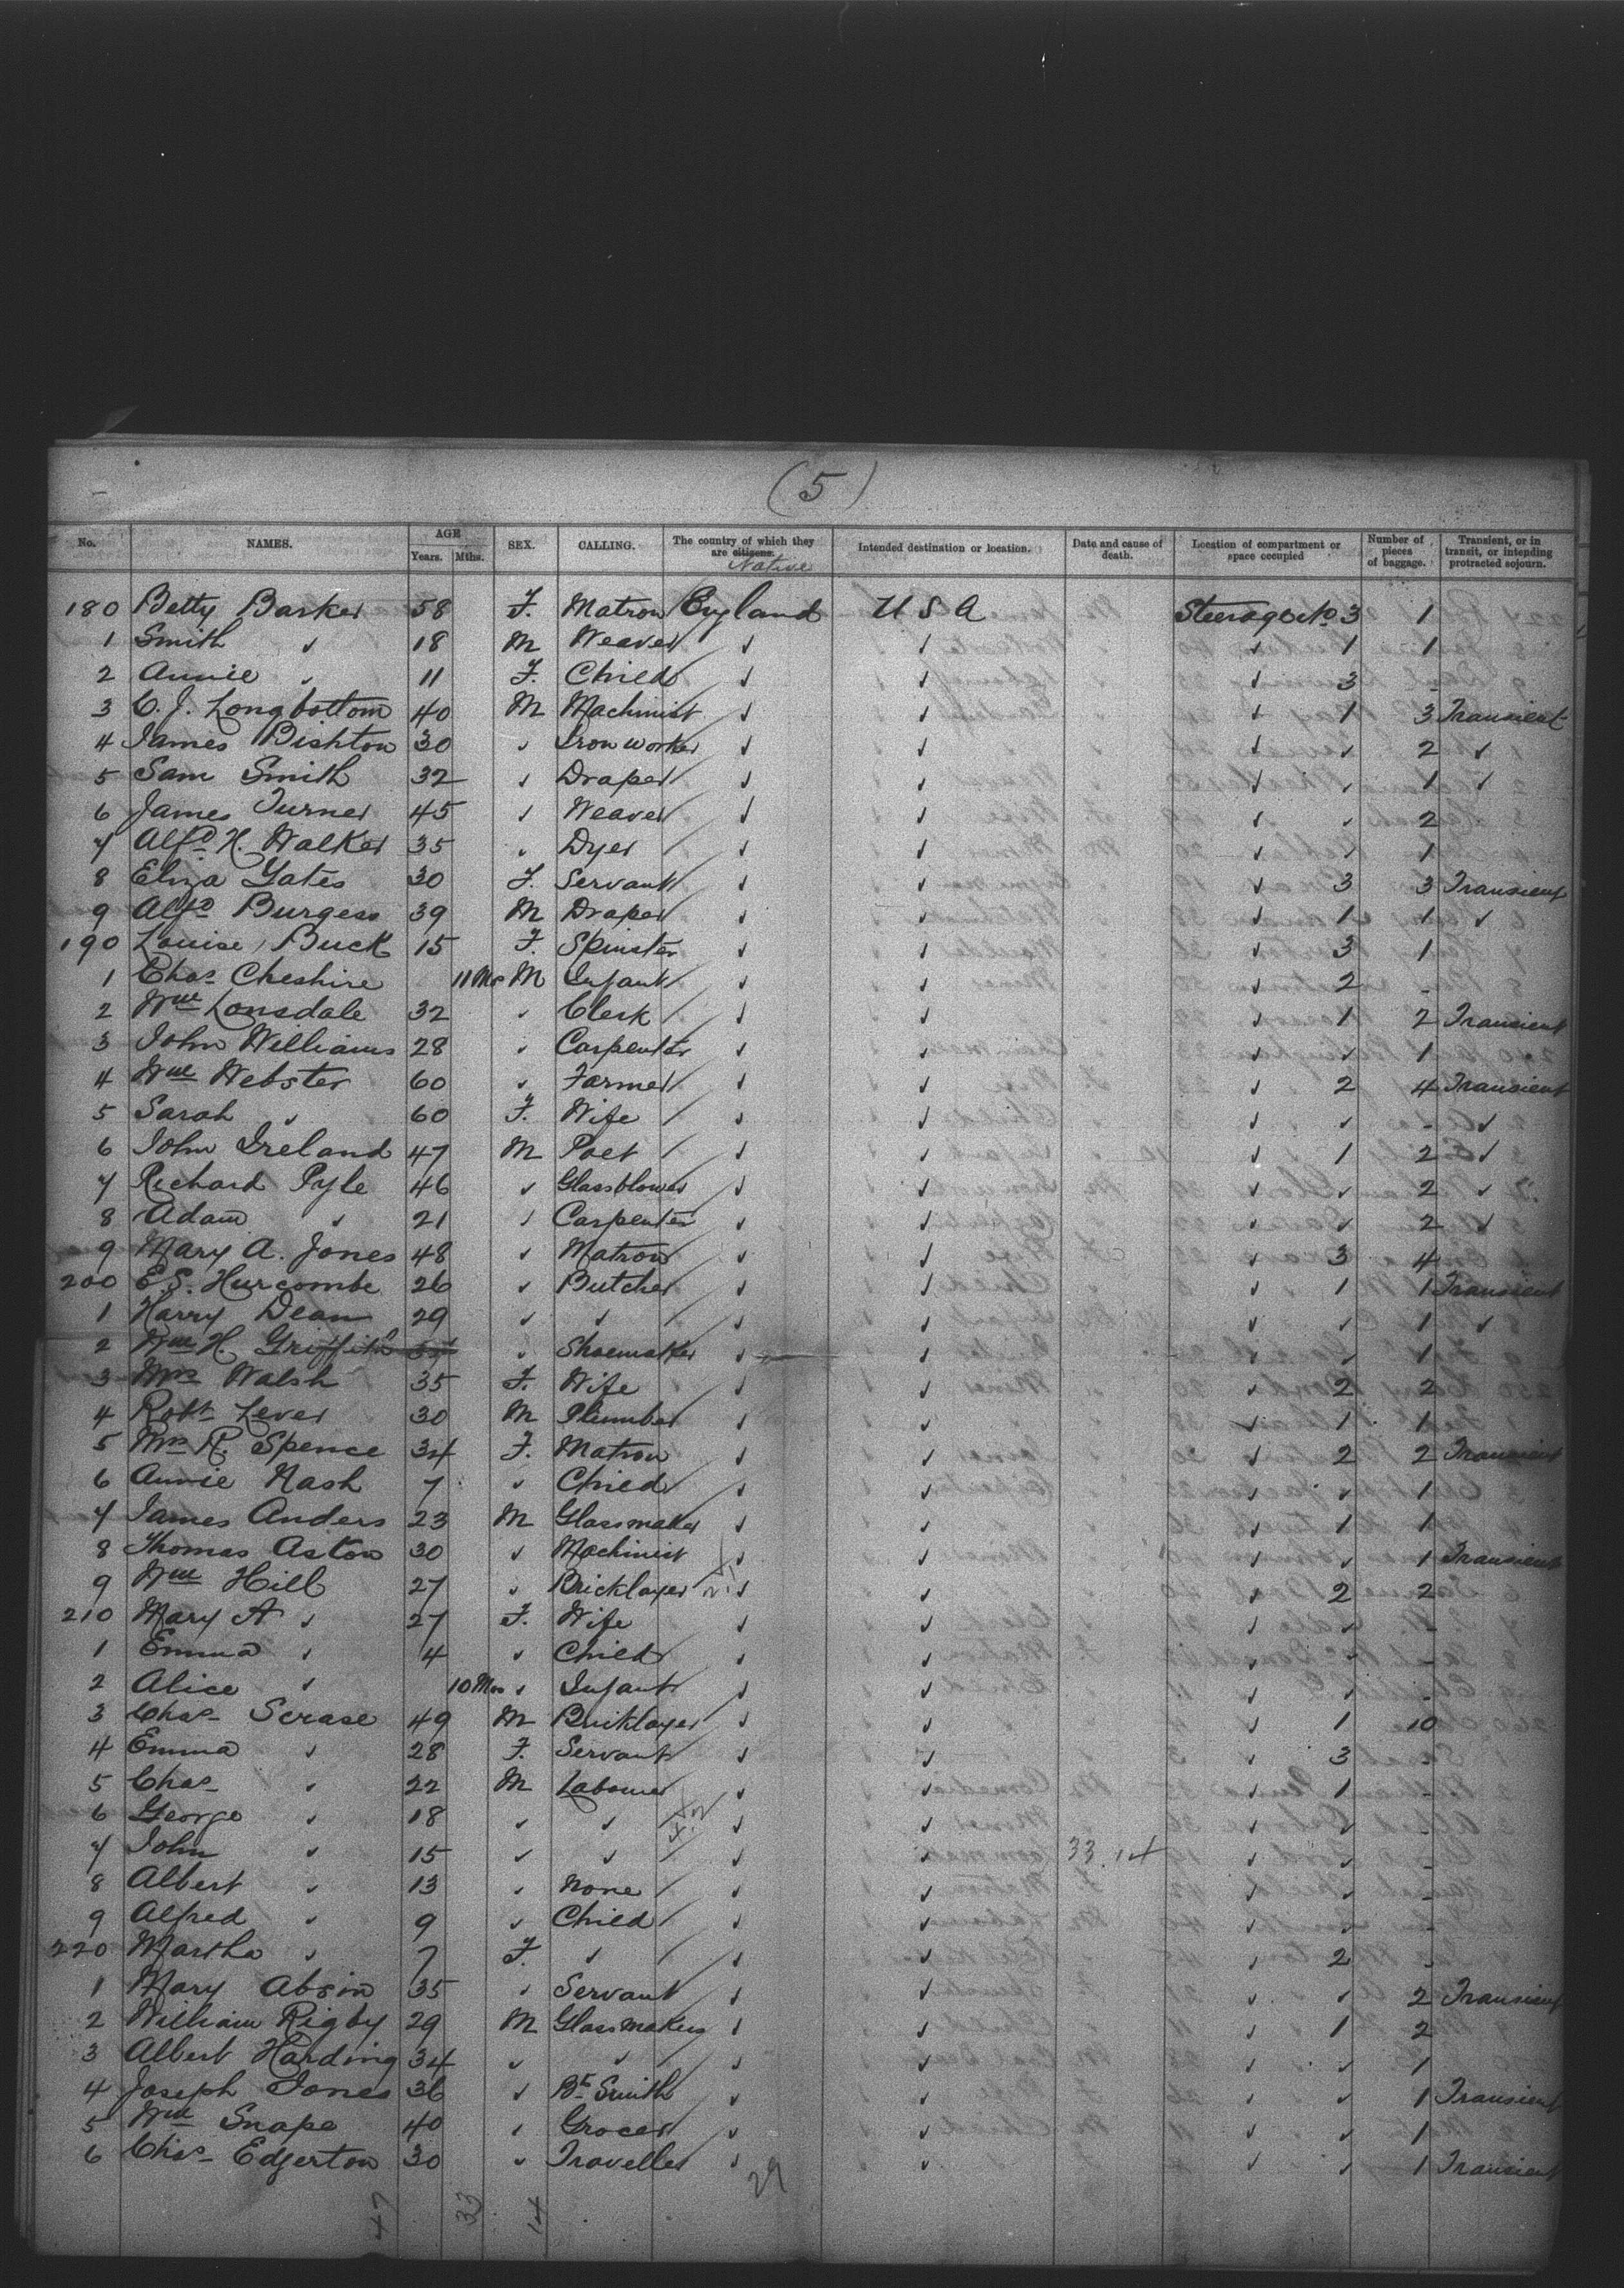 (5)
No. NAMES. AGE Years. Mths. SEX. CALLING. The country of which they are citizens. Native Intended destination or location. Date and cause of death. Location of compartment or space occupied Number of pieces of baggage. Transient, or in transit, or intending protracted sojourn.
180 Betty Barker 58 F. Matron England U S A Steerage No. 3 1
1 Smith ✓ 18 M Weaver ✓ ✓ ✓ 1 1
2 Annie ✓ 11 F. Child ✓ ✓ ✓ 3 -
3 C. J. Longbottom 40 M Machinist ✓ ✓ ✓ 1 3 Transient
4 James Bishton 30 ✓ Iron worker ✓ ✓ ✓ ✓ 2 ✓
5 Sam Smith 32 ✓ Draper ✓ ✓ ✓ ✓ 1 ✓
6 James Turner 45 ✓ Weaver ✓ ✓ ✓ ✓ 2
7 Alfd H. Walker 35 ✓ Dyer ✓ ✓ ✓ ✓ 1
8 Eliza Yates 30 F. Servant ✓ ✓ ✓ 3 3 Transient
9 Alfd Burgess 39 M Draper ✓ ✓ ✓ 1 1 ✓
190 Louise Buck 15 F. Spinster ✓ ✓ ✓ 3 1
1 Chas Cheshire 11 Mos M Infant ✓ ✓ ✓ 2 -
2 Wm Lonsdale 32 ✓ Clerk ✓ ✓ ✓ 1 2 Transient
3 John Williams 28 ✓ Carpenter ✓ ✓ ✓ ✓ 1
4 Wm Webster 60 ✓ Farmer ✓ ✓ ✓ 2 4 Transient
5 Sarah ✓ 60 F. Wife ✓ ✓ ✓ ✓ - ✓
6 John Ireland 47 M Poet ✓ ✓ ✓ 1 2 ✓
7 Richard Pyle 46 ✓ Glassblower ✓ ✓ ✓ ✓ 2 ✓
8 Adam ✓ 21 ✓ Carpenter ✓ ✓ ✓ ✓ 2 ✓
9 Mary A. Jones 48 ✓ Matron ✓ ✓ ✓ 3 4
200 E. S. Hurcombe 26 ✓ Butcher ✓ ✓ ✓ 1 1 Transient
1 Harry Dean 29 ✓ ✓ ✓ ✓ ✓ ✓ 1 ✓
2 Wm H. Griffith ✓ Shoemaker ✓ ✓ ✓ ✓ 1
3 Mrs Walsh 35 F. Wife ✓ ✓ ✓ 2 2
4 Robt Lever 30 M Plumber ✓ ✓ ✓ 1 1
5 Mrs R. Spence 34 F. Matron ✓ ✓ ✓ 2 2 Transient
6 Annie Nash 7 ✓ Child ✓ ✓ ✓ ✓ 1
7 James Anders 23 M Glassmaker ✓ ✓ ✓ 1 1
8 Thomas Aston 30 ✓ Machinist ✓ ✓ ✓ ✓ 1 Transient
9 Wm Hill 27 ✓ Bricklayer ✓ ✓ ✓ 2 2
210 Mary A ✓ 27 F. Wife ✓ ✓ ✓ ✓ -
1 Emma ✓ 4 ✓ Child ✓ ✓ ✓ ✓ -
2 Alice ✓ 10 Mos ✓ Infant ✓ ✓ ✓ ✓ -
3 Chas Scrase 49 M Bricklayer ✓ ✓ ✓ 1 10
4 Emma ✓ 28 F. Servant ✓ ✓ ✓ 3 -
5 Chas ✓ 22 M Labourer ✓ ✓ ✓ 1 -
6 George ✓ 18 ✓ ✓ ✓ ✓ ✓ ✓ -
7 John ✓ 15 ✓ ✓ ✓ ✓ 33.14 ✓ ✓ -
8 Albert ✓ 13 ✓ None ✓ ✓ ✓ ✓ -
9 Alfred ✓ 9 ✓ Child ✓ ✓ ✓ ✓ -
220 Martha ✓ 7 F. ✓ ✓ ✓ ✓ 2 -
1 Mary Absin 35 ✓ Servant ✓ ✓ ✓ ✓ 2 Transient
2 William Rigby 29 M Glassmakers ✓ ✓ ✓ 1 2
3 Albert Harding 34 ✓ ✓ ✓ ✓ ✓ ✓ 1
4 Joseph Jones 36 ✓ Bk Smith ✓ ✓ ✓ ✓ 1 Transient
5 Wm Snape 40 ✓ Grocer ✓ ✓ ✓ ✓ 1
6 Chas Edgerton 30 ✓ Traveller ✓ ✓ ✓ ✓ 1 Transient
47 33 14 29